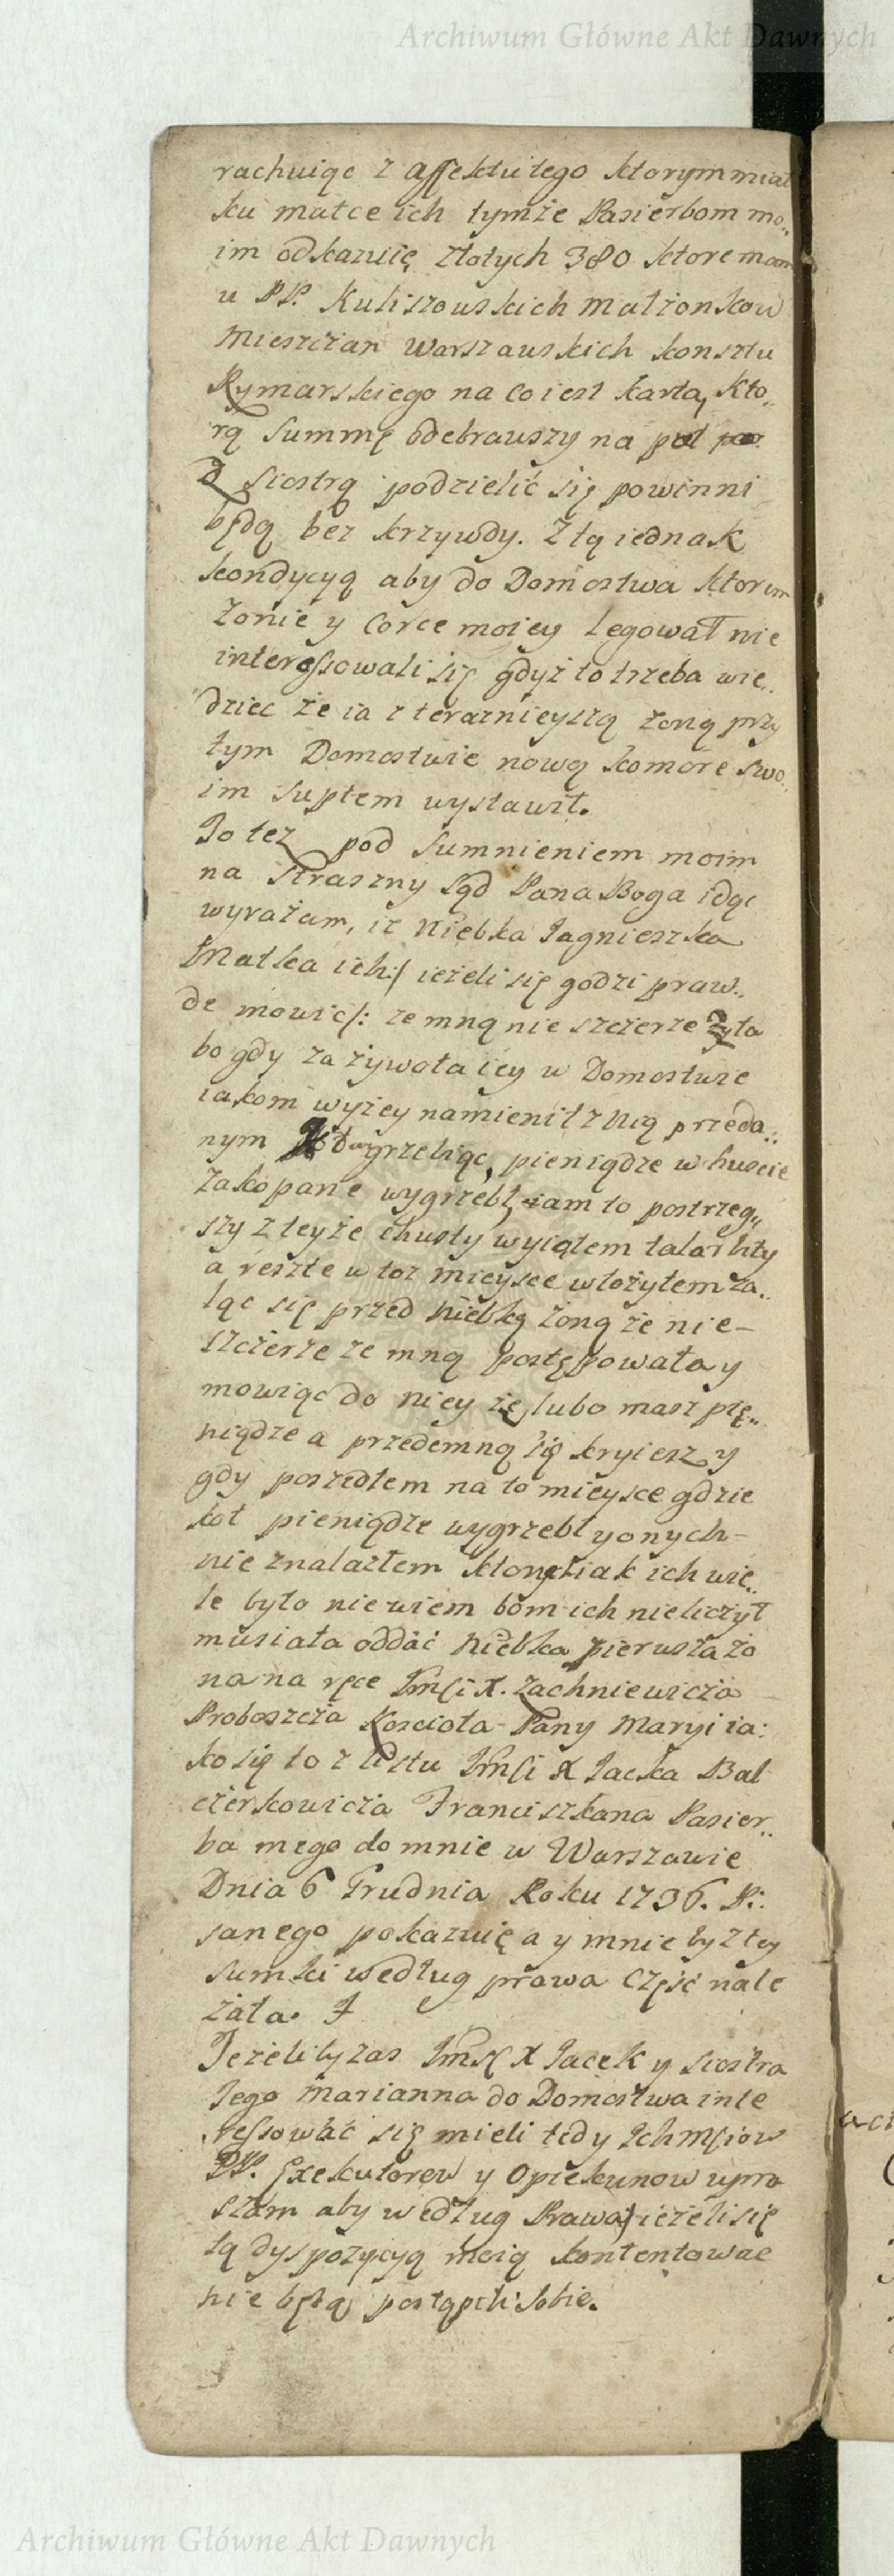 Archiwum Główne Akt Dawnych
rachuiąc z affektu tego ktorym miał
ku matce ich tymże Pasierbom mo„
im odkazuię złotych 380 ktore mam
u PP. Kuliszowskich Małżonkow
Mieszczan Warszawskich konsztu
Rymarskiego na co iest karta, kto„
rą summę odebrawszy na puł
z siostrą podzielić się powinni
będą bez krzywdy. Z tą iednak
kondycyą aby do Domostwa ktorem
żonie y corce moiey legował nie
interessowali się gdyż to trzeba wie„
dziec że ia z teraznieyszą żoną przy
tym Domostwie nową komore swo„
im suptem wystawił.
Jo tez pod sumnieniem moim
na straszny sąd Pana Boga idąc
wyrażam, iż Niebka Jagnieszka
Matka ich:/ ieżeli się godzi praw„
de mowic/: ze mną nie szczerze żyła
bo gdy za żywota iey w Domostwie
iakom wyżey namienił z nią przeda„
nym grzebiąc, pieniądze w huscie
zakopane wygrzebł, iam to postrzeg„
szy z teyże chusty wyiąłem talar bity
a reszte w toż mieysce włożyłem ża„
ląc się przed niebką żoną że nie-
szczerze ze mną postępowała y
mowiąc do niey że, lubo masz pię„
niądze a przedemną się kryiesz y
gdy poszedłem na to mieysce gdzie
kot pieniądze wygrzebł y onych-
nie znalazłem ktonych iak ich wie„
le było nie wiem bom ich nie liczył
musiała oddać niebka pierwsza żo
na na ręce Jmsci X. Zachniewicza
Proboszcza Koscioła Pany Maryi ia:
ko się to z listu Jmsci X Jacka Bal
cierkowicza Franciszkana Pasier„
ba mego do mnie w Warszawie
Dnia 6 Grudnia Roku 1736. Pi:
sanego pokazuię a y mnie by z tey
sumki według prawa część nale
żała. J
Jeżeliby zas Jmsć X Jacek y siostra
Jego Marianna do Domostwa inte
ressować się mieli tedy Ichmsciow
PP. Exekutorow y Opiekunow upra
szam aby według Prawa) ieżeli się
tą dyspozycyą moią kontentowac
nie będą postąpili sobie.
Archiwum Główne Akt Dawnych